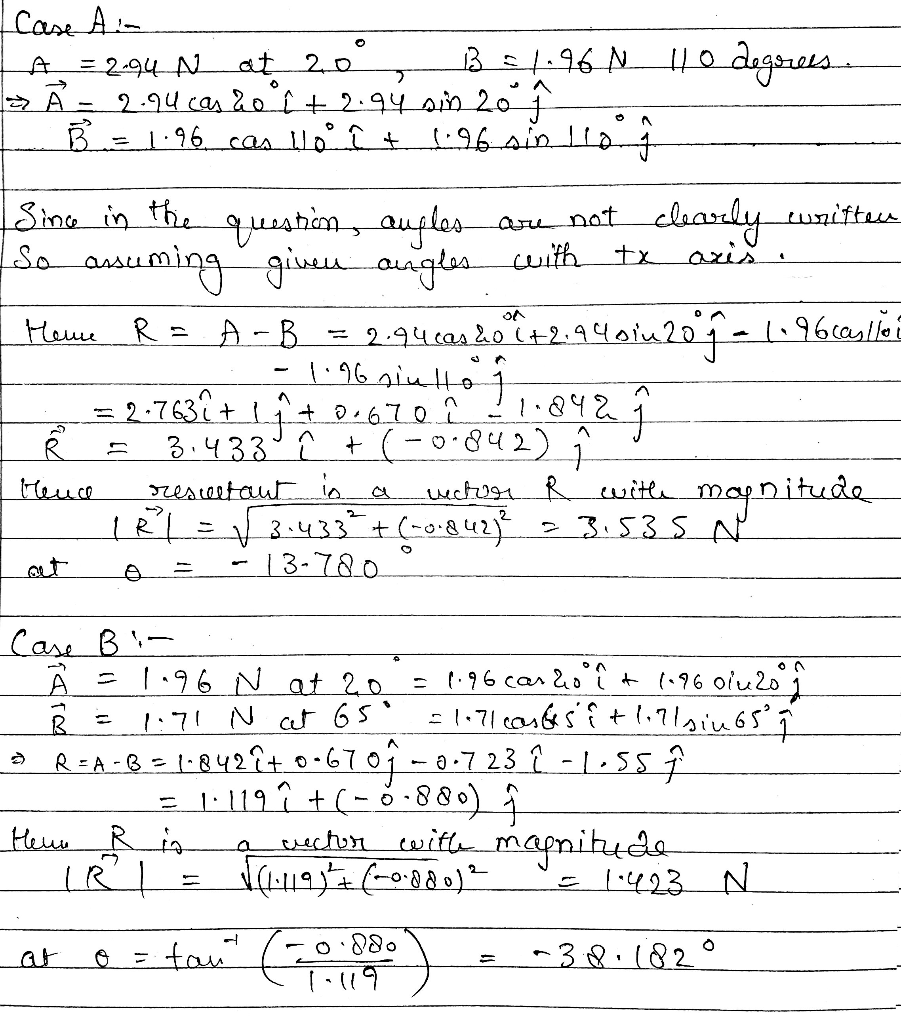 Case A :-
A = 2.94 N at 20°, B = 1.96 N 110 degrees.
⇒ A⃗ = 2.94 cos 20° î + 2.94 sin 20° ĵ
B⃗ = 1.96 cos 110° î + 1.96 sin 110° ĵ
Since in the question, angles are not clearly written
So assuming given angles with +x axis.
Hence R = A - B = 2.94 cos 20° î + 2.94 sin 20° ĵ - 1.96 cos 110 î
- 1.96 sin 110° ĵ
= 2.763 î + 1 ĵ + 0.670 î - 1.842 ĵ
R⃗ = 3.433 î + (-0.842) ĵ
Hence resultant is a vector R with magnitude
|R⃗| = √3.433² + (-0.842)² = 3.535 N
at θ = -13.780°
Case B :-
A⃗ = 1.96 N at 20° = 1.96 cos 20° î + 1.96 sin 20° ĵ
B⃗ = 1.71 N at 65° = 1.71 cos 65° î + 1.71 sin 65° ĵ
⇒ R = A - B = 1.842 î + 0.670 ĵ - 0.723 î - 1.55 ĵ
= 1.119 î + (-0.880) ĵ
Hence R is a vector with magnitude
|R⃗| = √(1.119)² + (-0.880)² = 1.423 N
at θ = tan⁻¹ (-0.880 / 1.119) = -38.182°